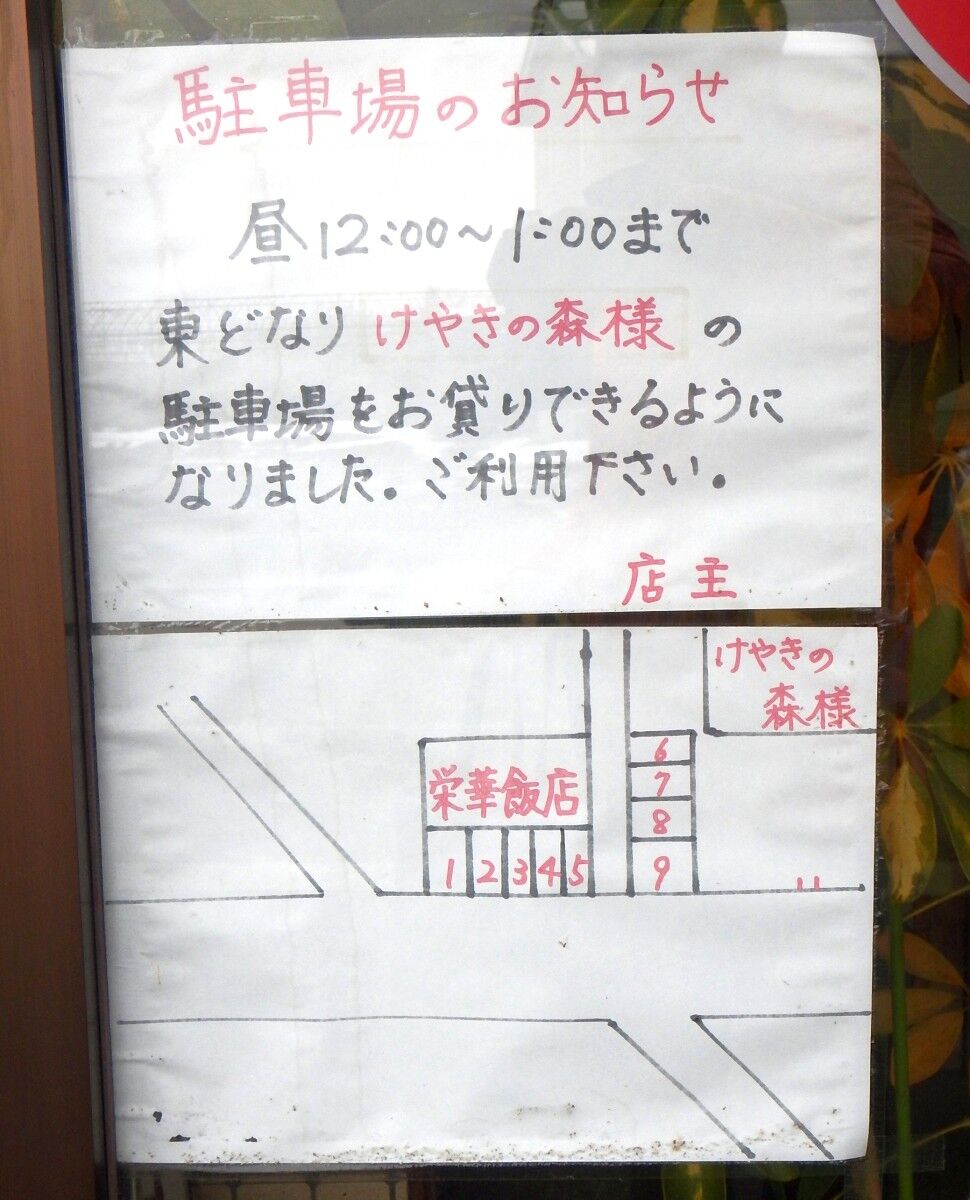 駐車場のお知らせ
昼12:00～1:00まで
東どなり けやきの森様 の
駐車場をお貸りできるように
なりました。ご利用下さい。
店主
けやきの
森様
栄華飯店
1 2 3 4 5
6
7
8
9